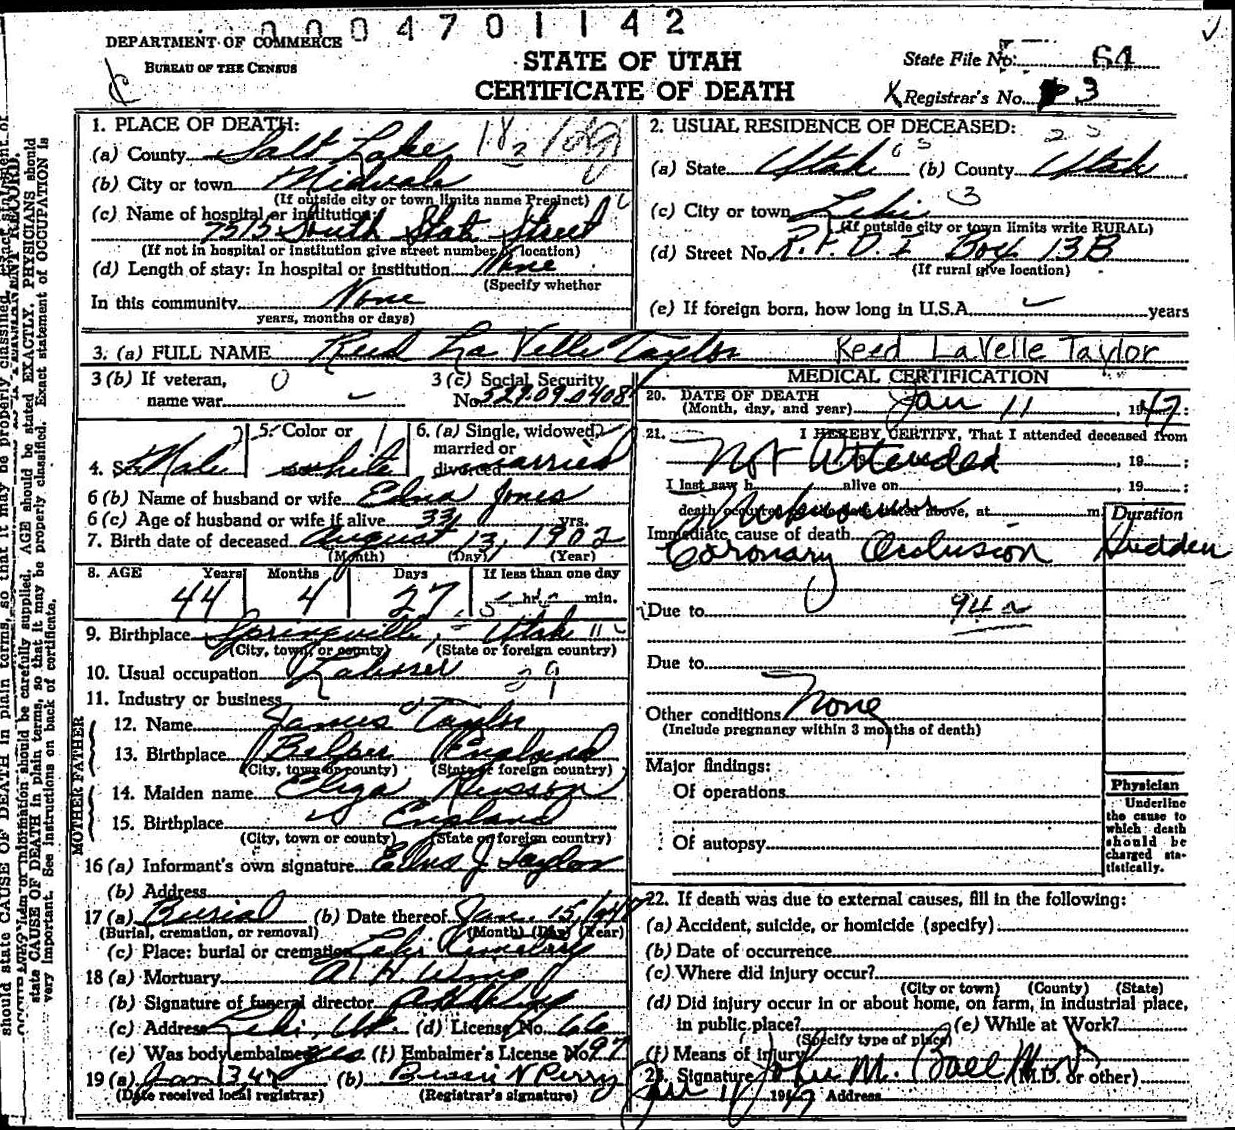 0004701142
DEPARTMENT OF COMMERCE
BUREAU OF THE CENSUS
STATE OF UTAH
CERTIFICATE OF DEATH
State File No. 64
Registrar's No. 3
1. PLACE OF DEATH:
(a) County Salt Lake
(b) City or town Midvale
(If outside city or town limits name Precinct)
(c) Name of hospital or institution:
7515 South State Street
(If not in hospital or institution give street number or location)
(d) Length of stay: In hospital or institution None
(Specify whether
In this community None
years, months or days)
2. USUAL RESIDENCE OF DECEASED:
(a) State Utah (b) County Utah
(c) City or town Lehi
(If outside city or town limits write RURAL)
(d) Street No. R.F.D. 1 Box 13B
(If rural give location)
(e) If foreign born, how long in U.S.A. years
3. (a) FULL NAME Reed La Velle Taylor Reed LaVelle Taylor
3 (b) If veteran, 0
name war
3 (c) Social Security
No. 529-09-0408
4. Sex Male
5. Color or
white
6. (a) Single, widowed,
married or
divorced married
6 (b) Name of husband or wife Edna Jones
6 (c) Age of husband or wife if alive 33 yrs.
7. Birth date of deceased August 13, 1902
(Month) (Day) (Year)
8. AGE Years Months Days If less than one day
44 4 27 hr. min.
9. Birthplace Springville, Utah
(City, town, or county) (State or foreign country)
10. Usual occupation Laborer
11. Industry or business
FATHER
12. Name James Taylor
13. Birthplace Belper England
(City, town or county) (State or foreign country)
MOTHER
14. Maiden name Eliza
15. Birthplace England
(City, town or county) (State or foreign country)
16 (a) Informant's own signature Edna J. Taylor
(b) Address
17 (a) Burial (b) Date thereof Jan. 15, 1947
(Burial, cremation, or removal) (Month) (Day) (Year)
(c) Place: burial or cremation Lehi Cemetery
18 (a) Mortuary A. H. Wing
(b) Signature of funeral director
(c) Address Lehi, Ut. (d) License No. 66
(e) Was body embalmed yes (f) Embalmer's License No. 97
19 (a) Jan 13 47 (b) Bessie N Perry
(Date received local registrar) (Registrar's signature)
MEDICAL CERTIFICATION
20. DATE OF DEATH
(Month, day, and year) Jan 11, 1947
21. I HEREBY CERTIFY, That I attended deceased from
Not Attended, 19 ;
I last saw h alive on , 19 ;
death occurred on the date stated above, at m. Unknown
Duration
Immediate cause of death
Coronary Occlusion Sudden
Due to 94a
Due to
Other conditions None
(Include pregnancy within 3 months of death)
Major findings:
Of operations
Of autopsy
Physician
Underline
the cause to
which death
should be
charged sta-
tistically.
22. If death was due to external causes, fill in the following:
(a) Accident, suicide, or homicide (specify)
(b) Date of occurrence
(c) Where did injury occur?
(City or town) (County) (State)
(d) Did injury occur in or about home, on farm, in industrial place,
in public place? (e) While at Work?
(Specify type of place)
(f) Means of injury
23. Signature John M. (M.D. or other)
1947 Address
should state CAUSE OF DEATH in plain terms, so that it may be properly classified. Exact statement of
state CAUSE OF DEATH in plain terms, so that it may be properly classified. Exact statement of OCCUPATION is
very important. See instructions on back of certificate.